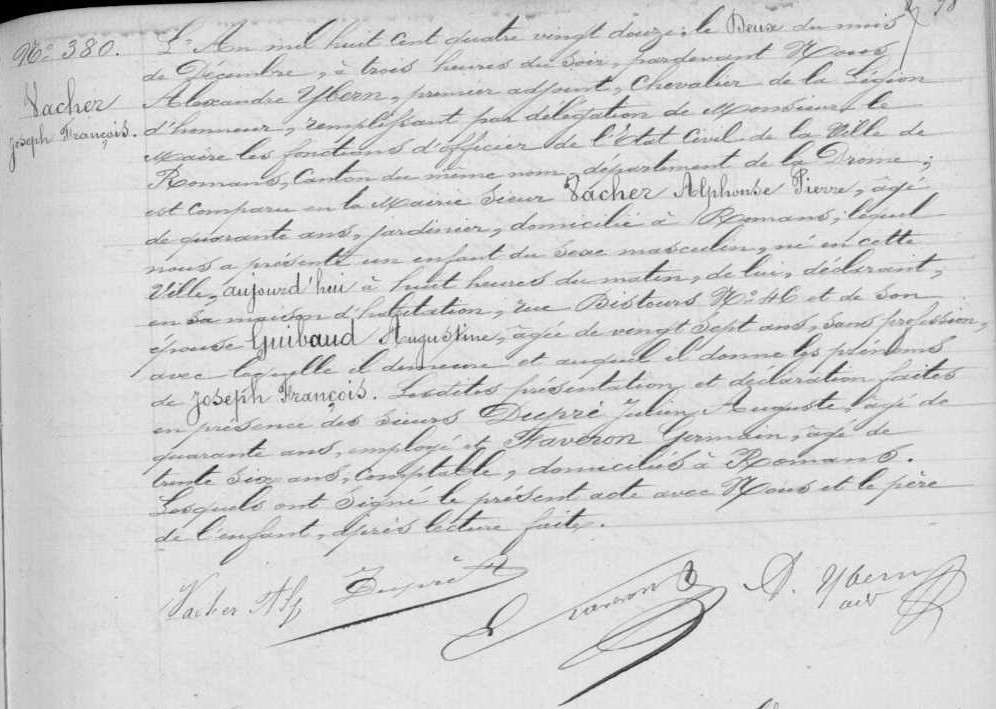 78
N° 380.
Vacher
Joseph François.
L'An mil huit cent quatre vingt douze, le Deux du mois
de Décembre, à trois heures du soir, pardevant Nous
Alexandre Ybern, premier adjoint, Chevalier de la Légion
d'honneur, remplissant par délégation de Monsieur le
Maire les fonctions d'officier de l'Etat Civil de la Ville de
Romans, Canton du même nom, département de la Drôme;
est comparu en la Mairie Sieur Vacher Alphonse Pierre, âgé
de quarante ans, jardinier, domicilié à Romans, lequel
nous a présenté un enfant du sexe masculin, né en cette
Ville, aujourd'hui à huit heures du matin, de lui, déclarant,
en sa maison d'habitation, rue Bistours N° 46 et de son
épouse Guibaud Augustine, âgée de vingt sept ans, sans profession,
avec laquelle il demeure et auquel il donne les prénoms
de Joseph François. Lesdites présentation et déclaration faites
en présence des sieurs Dupré Julien Auguste, âgé de
quarante ans, employé et Faveron Germain, âgé de
trente six ans, comptable, domiciliés à Romans.
Lesquels ont signé le présent acte avec Nous et le père
de l'enfant, après lecture faite.
Vacher Alp Dupré A. Ybern
adt